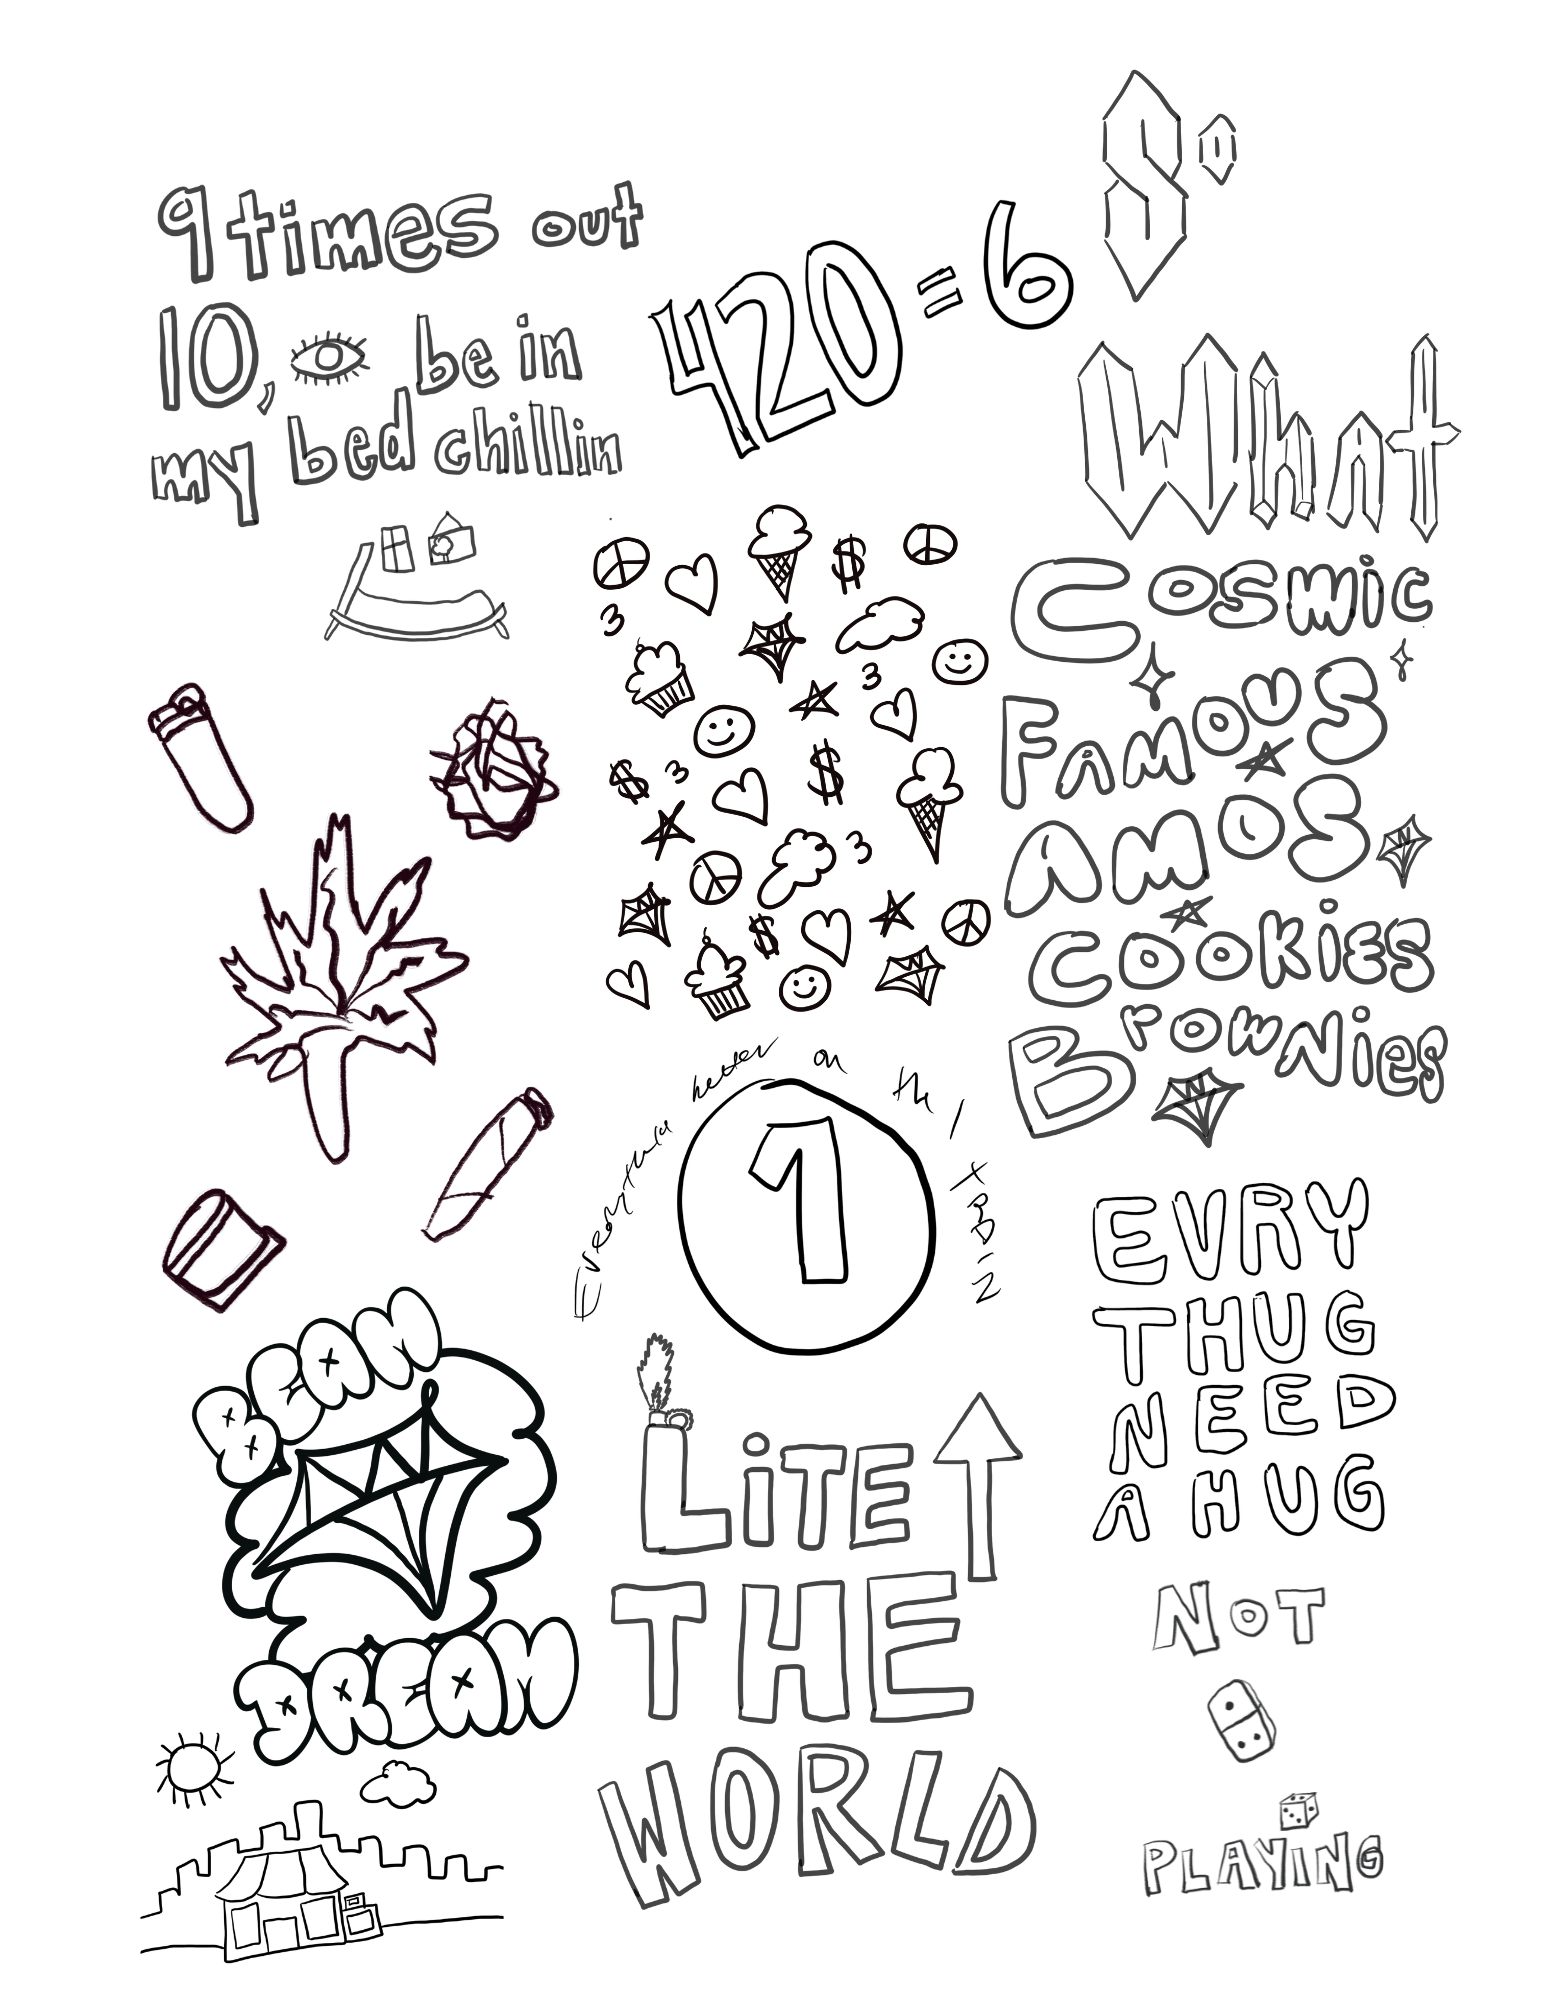 So
What
9 times out
10, be in
my bed chillin
420=6
3
3
3
3
Cosmic
Famous
Amos
Cookies
Brownies
better on the
1
EVRY
THUG
NEED
A HUG
BEAM
DREAM
LiTE
THE
WORLD
NOT
PLAYING